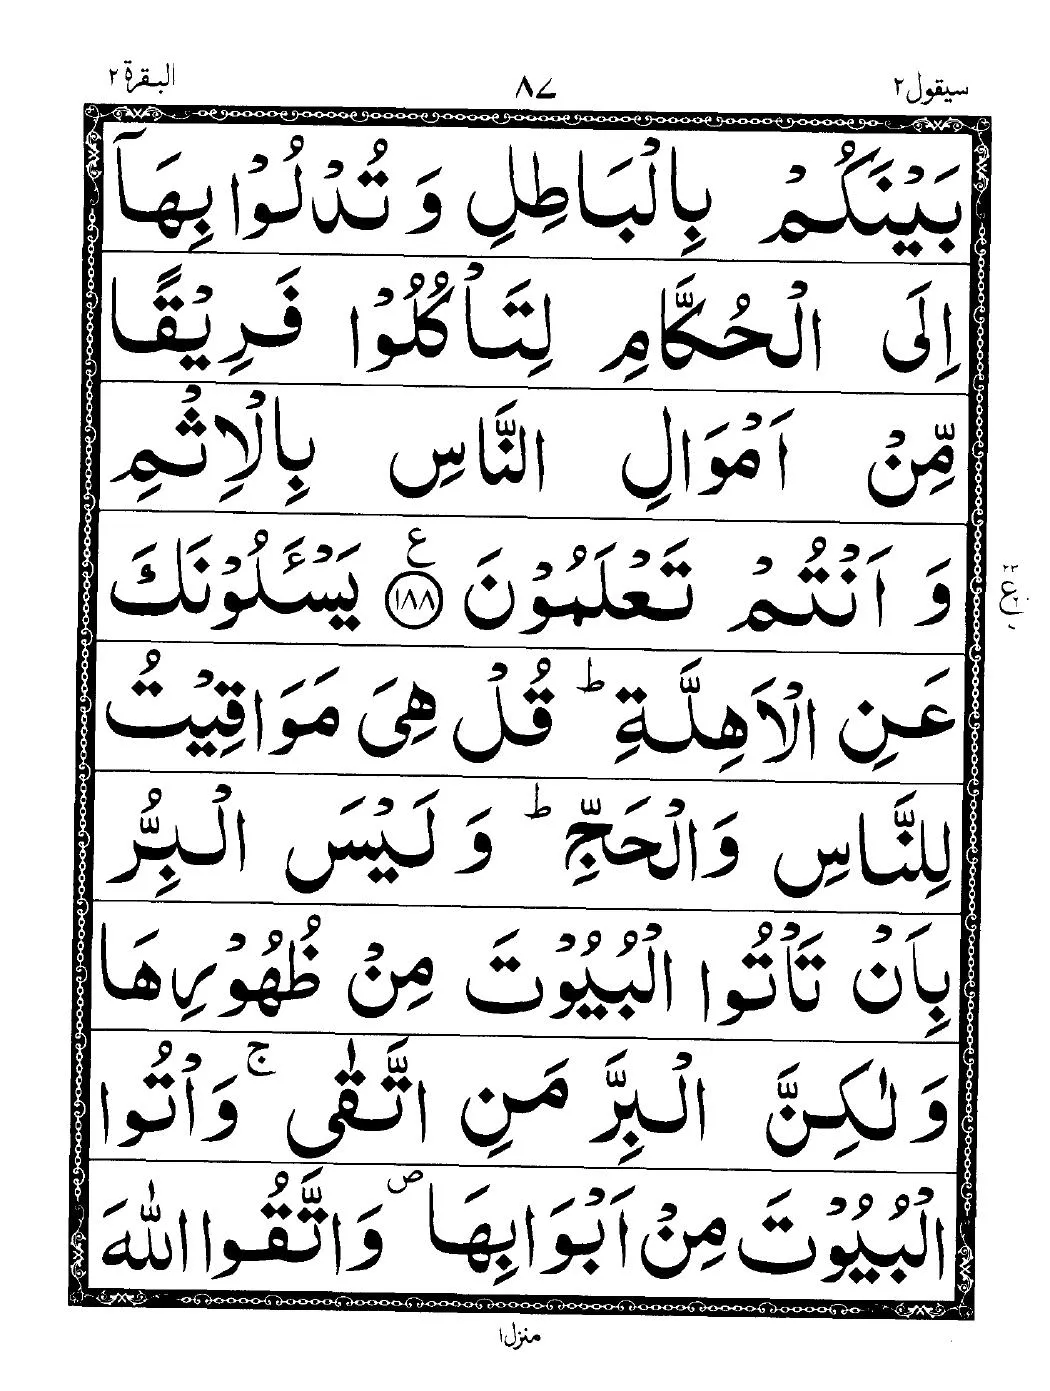 البقرة ٢ ٨٧ سيقول ٢
بَيْنَكُمْ بِالْبَاطِلِ وَ تُدْلُوْا بِهَآ
اِلَى الْحُكَّامِ لِتَاْكُلُوْا فَرِيْقًا
مِّنْ اَمْوَالِ النَّاسِ بِالْاِثْمِ
وَ اَنْتُمْ تَعْلَمُوْنَ ع ١٨٨ يَسْـَٔلُوْنَكَ
عَنِ الْاَهِلَّةِ ؕ قُلْ هِىَ مَوَاقِيْتُ
لِلنَّاسِ وَالْحَجِّ ؕ وَ لَيْسَ الْبِرُّ
بِاَنْ تَاْتُوا الْبُيُوْتَ مِنْ ظُهُوْرِهَا
وَ لٰكِنَّ الْبِرَّ مَنِ اتَّقٰى ۚ وَاْتُوا
الْبُيُوْتَ مِنْ اَبْوَابِهَا ۪ وَاتَّقُوا اللّٰهَ
منزل ١